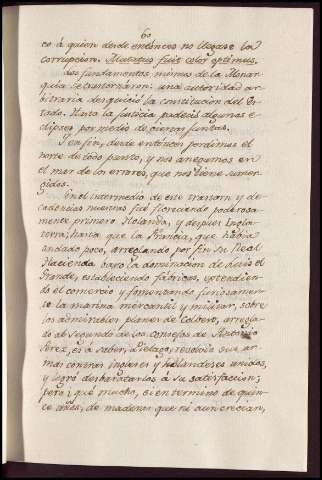 60
co á quien desde entónces no llegase la
corrupcion. Mutatus fuit color optimus.
Los fundamentos mismos de la Monar
quía se trastornáron: una autoridad ar
bitraria desquició la constitución del Es
tado. Hasta la Justicia padeció algunos e
clipses por medio de ciertas Juntas.
Y en fin, desde entónces perdimos el
norte de todo punto, y nos anegamos en
el mar de los errores, que nos tiene sumer
gidos.
En el intermedio de este trastorn y de
cadencias nuestras fué floreciendo poderosa
mente primero Holanda, y despues Ingla
terra; hasta que la Francia, que había
andado poco, arreglando por fin su Real
Hacienda baxo la dominacion de Luis el
Grande, estableciendo fábricas, extendien
do el comercio y fomentando furiosamen
te la marina mercantil y militar, sobre
los admirables planes de Colbert, arregla
do al segundo de los Consejos de Antonio
Perez, es á saber, Piélago, resolvió sus ar
mas contra Ingleses y Holandeses unidos,
y logró desbaratarlos á su satisfaccion;
pero ¡que mucho, si en termino de quin
ce años, de maderas que ni aun crecian,